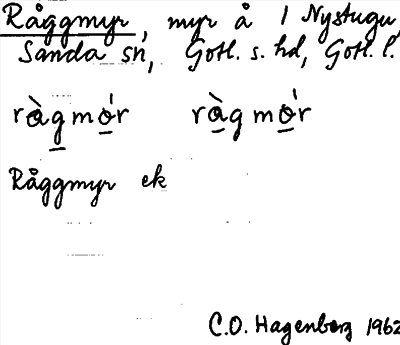 Råggmyr, myr å 1 Nystugu,
Sanda sn, Gotl. s. hd, Gotl. l.
ràgmór ràgmór
Råggmyr ek
C.O. Hagenberg 1962